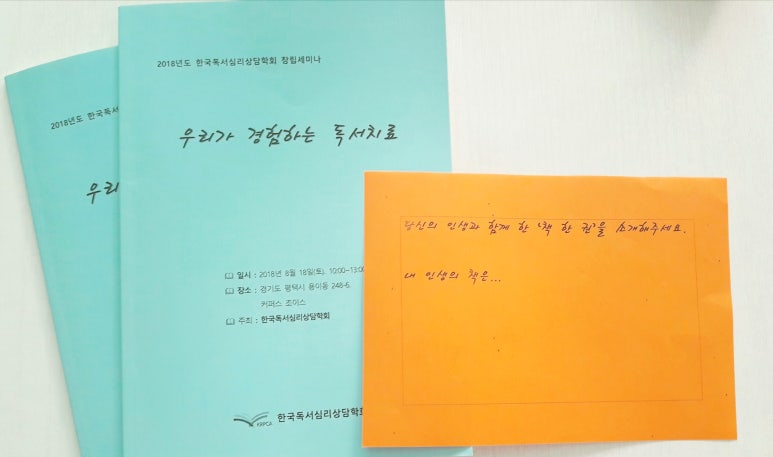 2018년도 한국독서
우리
2018년도 한국독서심리상담학회 창립세미나
우리가 경험하는 독서치료
일시 : 2018년 8월 18일(토). 10:00~13:00
장소 : 경기도 평택시 용이동 248-6.
커퍼스 조이스
주최 : 한국독서심리상담학회
KRPCA 한국독서심리상담학회
당신의 인생과 함께 한 '책 한 권'을 소개해주세요.
내 인생의 책은...